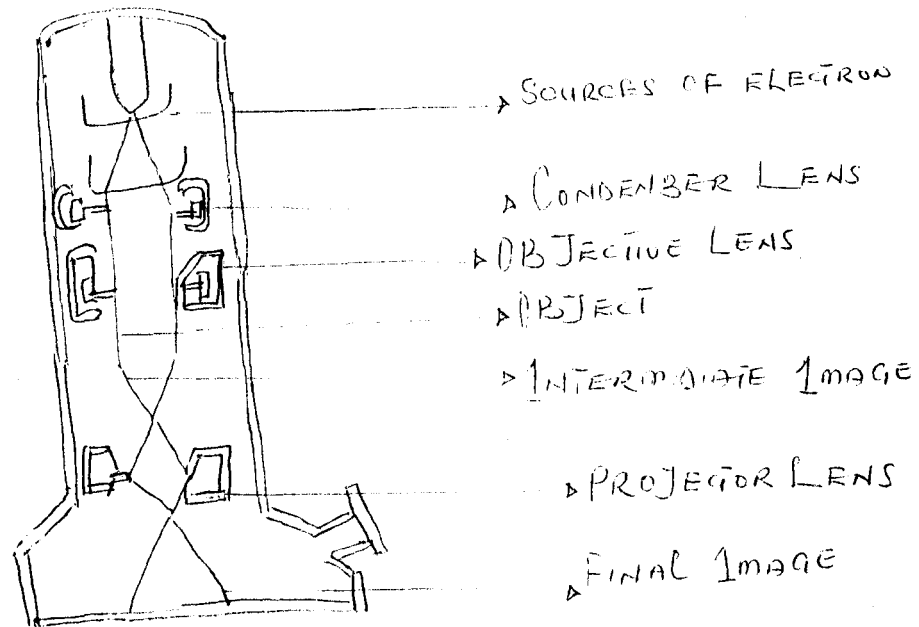 SOURCES OF ELECTRON
CONDENBER LENS
OBJECTIVE LENS
OBJECT
INTERMADIATE IMAGE
PROJECTOR LENS
FINAL IMAGE